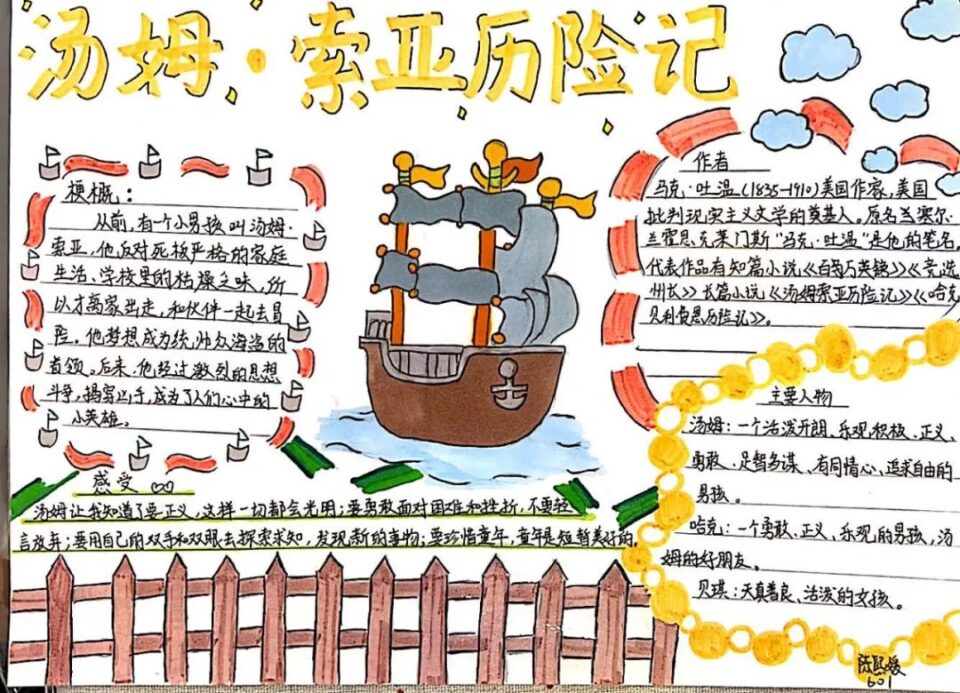 汤姆·索亚历险记
梗概：
从前,有一个小男孩叫汤姆·
索亚,他反对死板严格的家庭
生活、学校里的枯燥乏味,所
以才离家出走,和伙伴一起去冒
险。他梦想成为统帅众海盗的
首领。后来,他经过激烈的思想
斗争,揭穿凶手,成为了人们心中的
小英雄。
作者
马克·吐温(1835-1910)美国作家,美国
批判现实主义文学的奠基人。原名塞塞尔·
兰霍恩克莱门斯“马克·吐温”是他的笔名。
代表作品有短篇小说《百万英镑》《竞选
州长》长篇小说《汤姆索亚历险记》《哈克
贝利费恩历险记》。
主要人物
汤姆：一个活泼开朗、乐观积极、正义、
勇敢、足智多谋、有同情心、追求自由的
男孩。
哈克：一个勇敢、正义、乐观的男孩,汤
姆的好朋友。
贝琪：天真善良、活泼的女孩。
感受
汤姆让我知道了要正义,这样一切都会光明；要勇敢面对困难和挫折,不要轻
言放弃；要用自己的双手和双眼去探索求知,发现新的事物；要珍惜童年,童年是短暂美好的。
601